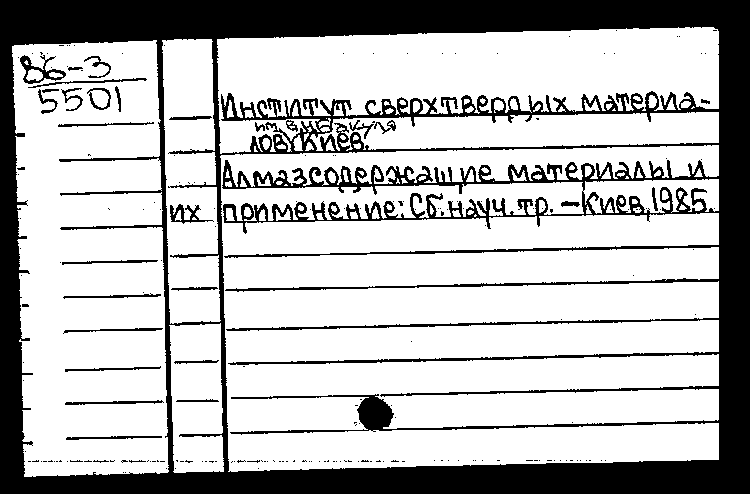 86-3
5501
Институт сверхтвердых материа-
им. В.Н.Бакуля
лов, Киев.
Алмазсодержащие материалы и
их применение: Сб. науч. тр. - Киев, 1985.